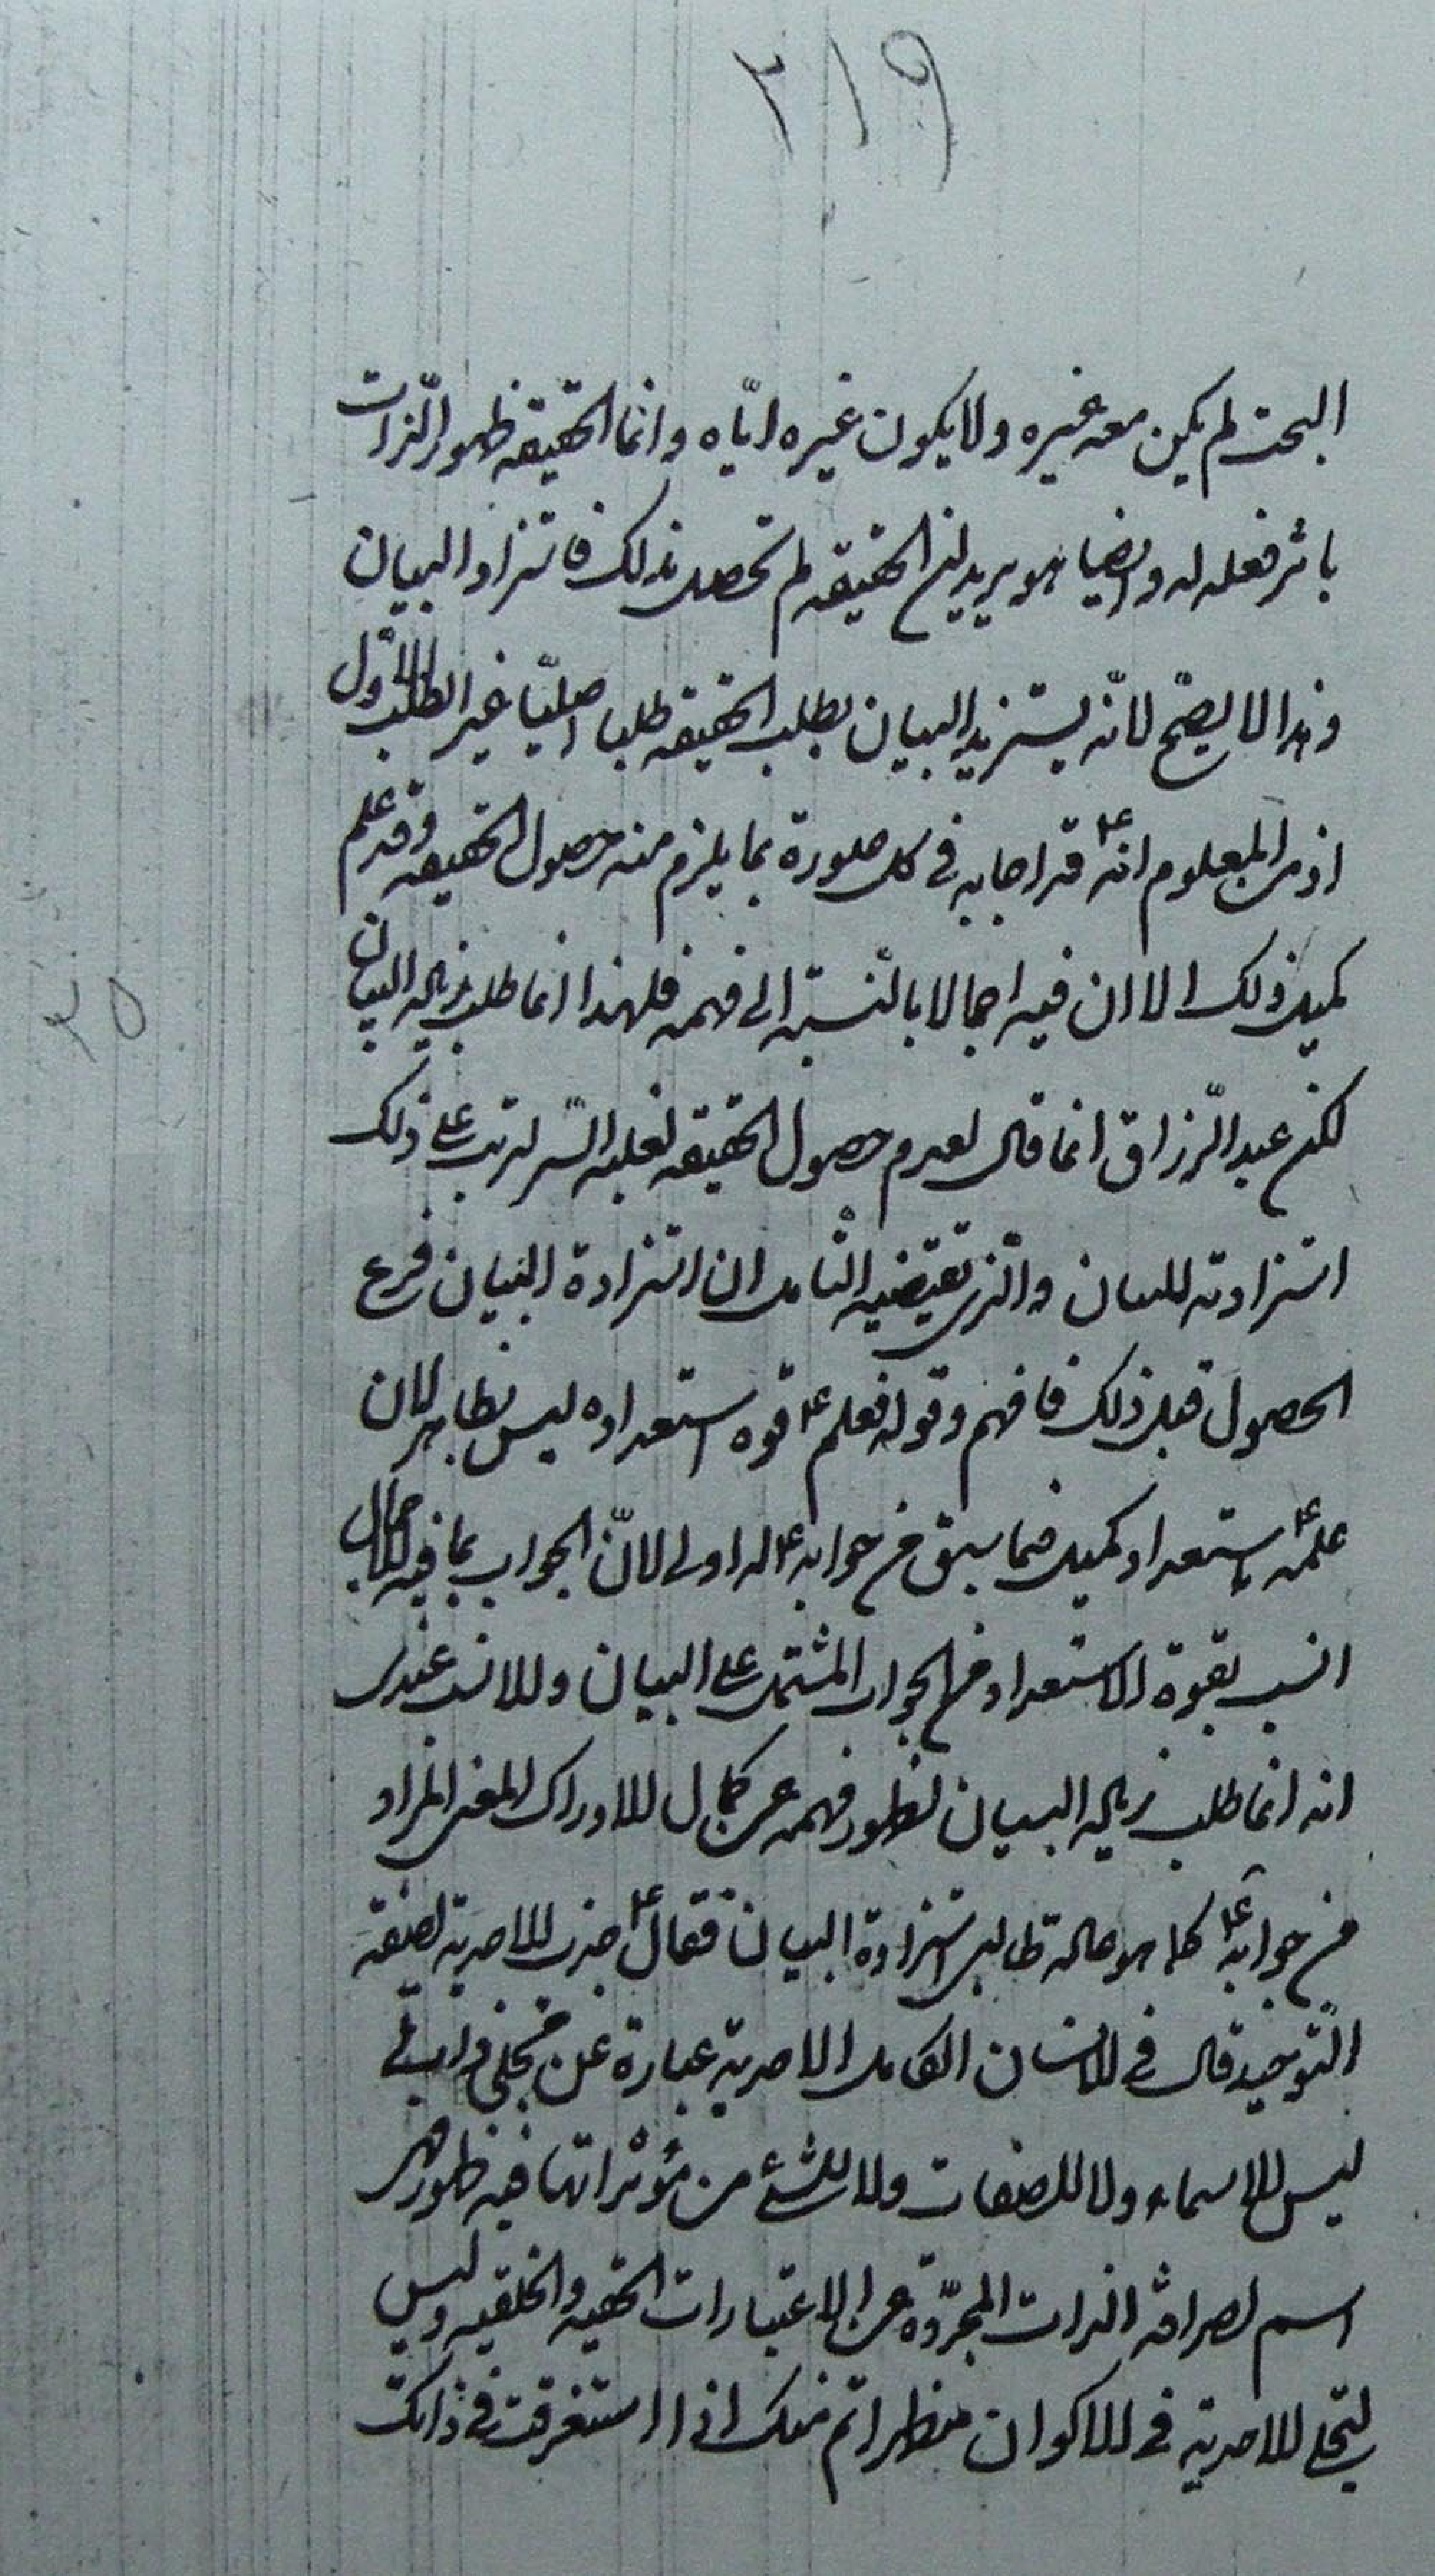 ٢١٩
البحت لم يكن معه غيره ولا يكون غيره اياه وانما الحقيقة ظهور الذات
باثر فعله له وايضا هو يريد ان الحقيقة لم تحصل بذلك فاستزاد البيان
وهذا لا يصح لانه يستزيد البيان بطلب الحقيقة طلبا اصليا غير الطلب الاول
اذ من المعلوم انه ع قد اجابه في كل صورة بما يلزم منه حصول الحقيقة وقد علم
كميل ذلك الا ان فيه اجمالا بالنسبة الى فهمه فلهذا انما طلب زيادة البيان
لكن عبد الرزاق انما قال لعدم حصول الحقيقة لغلبة السر لترتب على ذلك
استزادته للبيان والذي يقتضيه التأمل ان استزادة البيان فرع
الحصول قبل ذلك فافهم وقوله فعلم ع قوة استعداده ليس بظاهر لان
علمه ع باستعداد كميل فيما سبق من جوابه ع له اولى لان الجواب بما فيه الاجمال
انسب بقوة الاستعداد من الجواب المشتمل على البيان والانسب عندي
انه انما طلب زيادة البيان لقصور فهمه عن كمال الادراك المعنى المراد
من جوابه ع كما هو حالة طالب استزادة البيان فقال ع جذب الاحدية لصفة
التوحيد قال في الانسان الكامل الاحدية عبارة عن مجلى ذاتي
ليس للاسماء ولا للصفات ولا لشئ من مؤثراتها فيه ظهور فهي
اسم لصرافة الذات المجردة عن الاعتبارات الحقية والخلقية وليس
لتجلي الاحدية في الاكوان مظهر اتم منك اذا استغرقت في ذاتك
٣٥